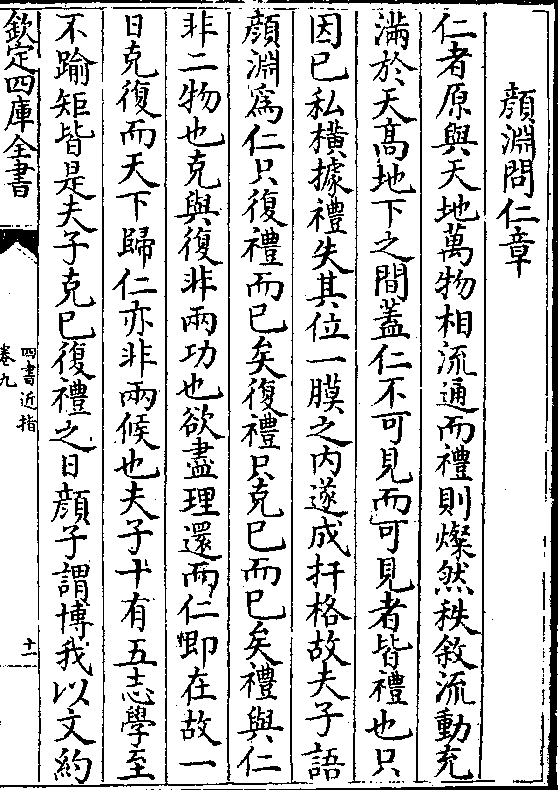 顔淵問仁章
仁者原與天地萬物相流通而禮則燦然秩敘流動充
滿於天髙地下之間蓋仁不可見而可見者皆禮也只
因已私橫據禮失其位一膜之内遂成扞格故夫子語
顔淵爲仁只復禮而已矣復禮只克已而已矣禮與仁
非二物也克與復非兩功也欲盡理還而仁即在故一
日克復而天下歸仁亦非兩候也夫子十有五志學至
不踰矩皆是夫子克已復禮之日顔子謂博我以文約
欽定四庫全書
四書近指
卷九
十一